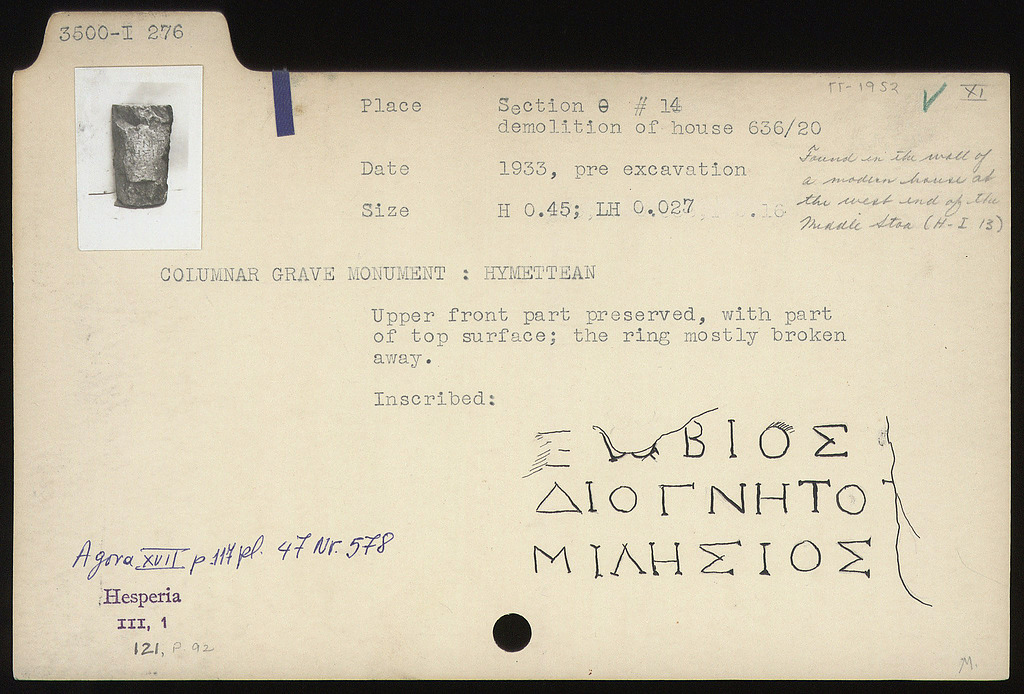 3500-I 276
ΓΓ-1952 ✓ XI
Place Section Θ # 14
demolition of house 636/20
Date 1933, pre excavation
Size H 0.45; LH 0.027, .16
Found in the wall of
a modern house at
the west end of the
Middle Stoa (H-I 13)
COLUMNAR GRAVE MONUMENT : HYMETTEAN
Upper front part preserved, with part
of top surface; the ring mostly broken
away.
Inscribed:
ΒΙΟΣ
ΔΙΟΓΝΗΤΟ
ΜΙΛΗΣΙΟΣ
Agora XVII p 117 pl. 47 Nr. 578
Hesperia
III, 1
121, P. 92
M.